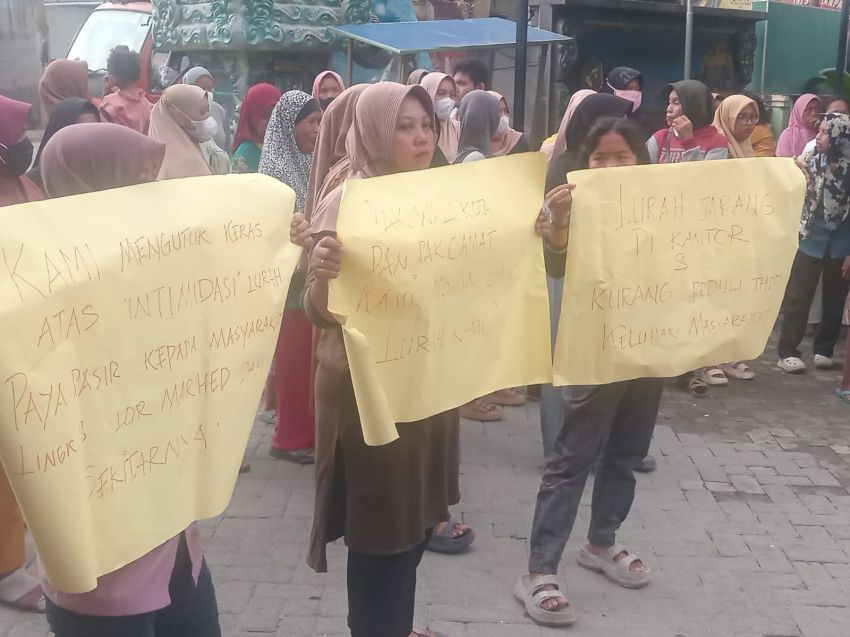 KAMI MENGUTUK KERAS
ATAS "INTIMIDASI" LURAH
PAYA PASIR KEPADA MASYARAKAT
LINGK 3 LOR MARHED DAN
SEKITARNYA
PAK WALI KOTA
DAN PAK CAMAT
KAMI MOHON
LURAH KAMI
LURAH JARANG
DI KANTOR
&
KURANG PEDULI THDP
KELUHAN MASYARAKAT